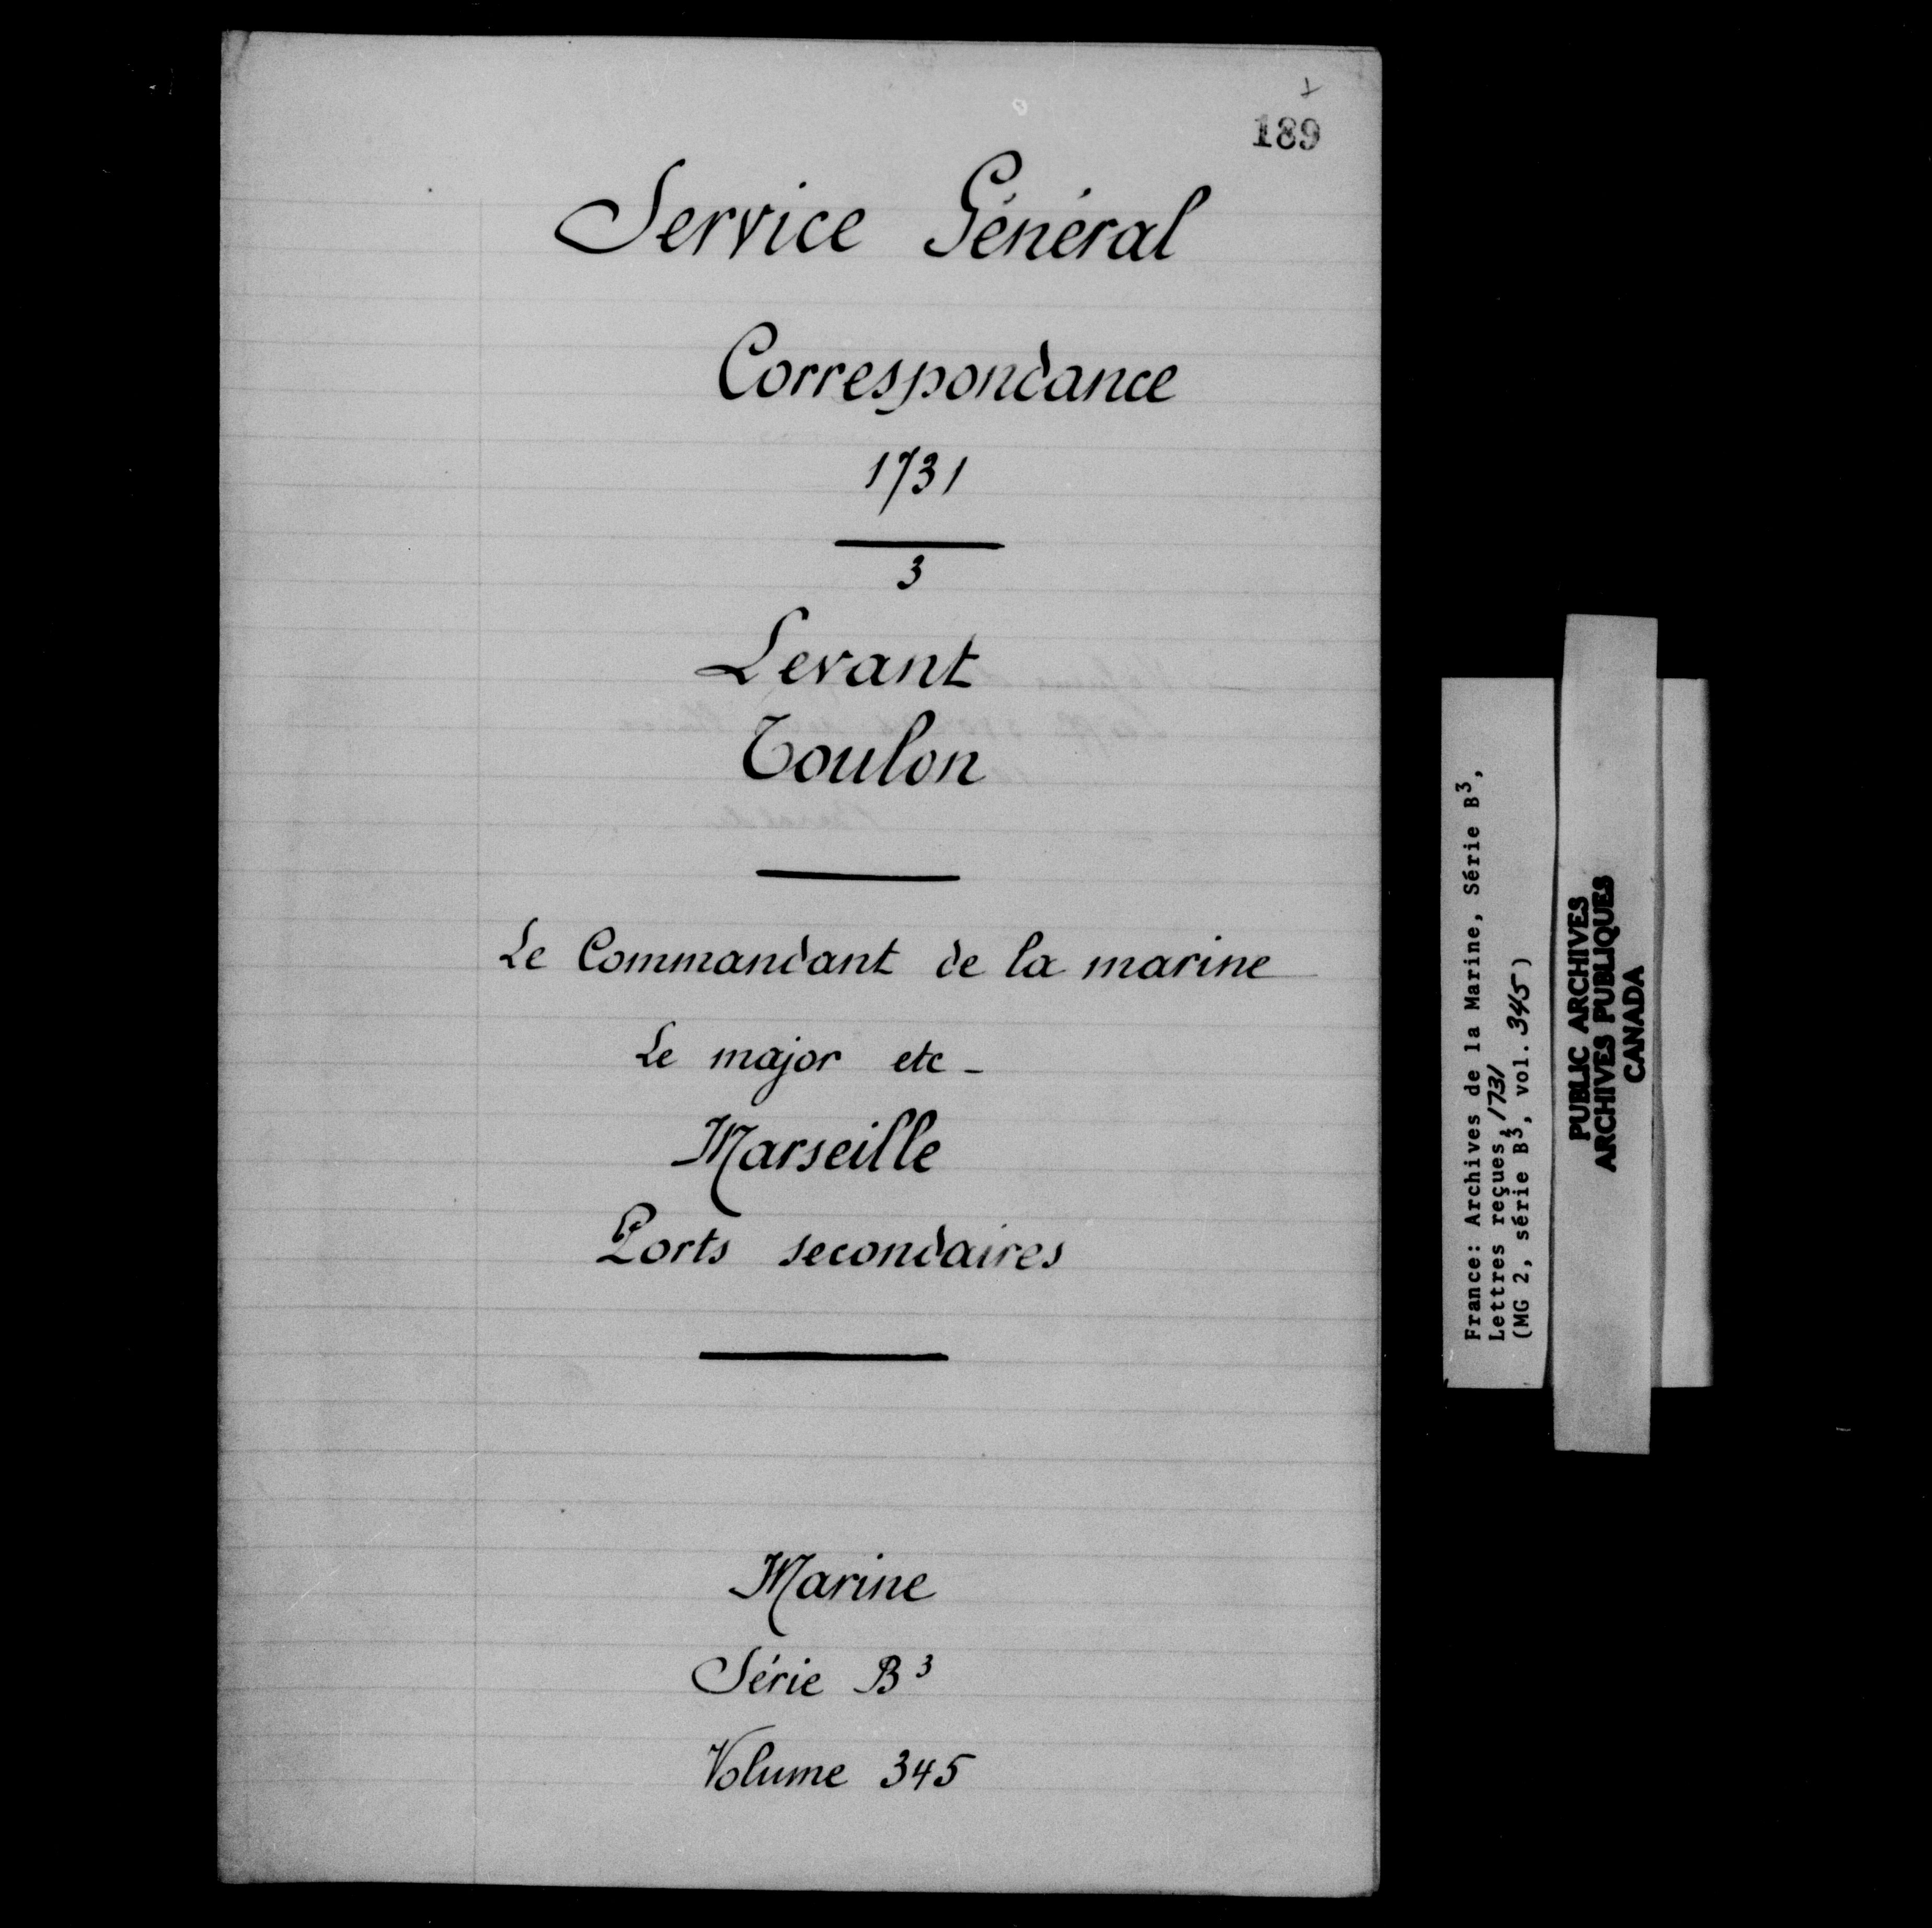 189
Service Général
Correspondance
1731
3
Levant
Toulon
Le Commandant de la marine
Le major etc -
Marseille
Ports secondaires
Marine
Série B3
Volume 345
France: Archives de la Marine, Série B3,
Lettres reçues, 1731
(MG 2, série B3, vol. 345)
PUBLIC ARCHIVES
ARCHIVES PUBLIQUES
CANADA